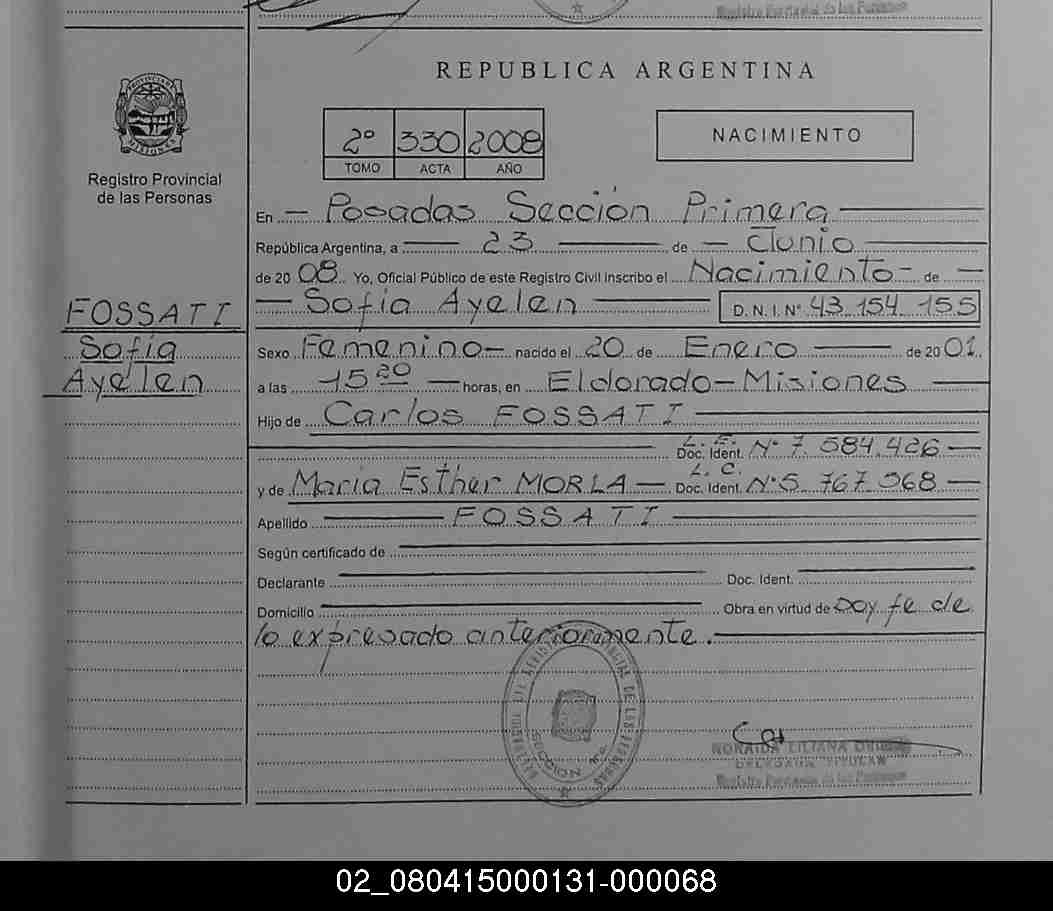 Registro Provincial de las Personas
REPUBLICA ARGENTINA
PROVINCIA DE MISIONES
Registro Provincial
de las Personas
2º 330 2008
TOMO ACTA AÑO
NACIMIENTO
En — Posadas Sección Primera
República Argentina, a 23 de — Junio
de 2008. Yo, Oficial Público de este Registro Civil inscribo el Nacimiento - de —
— Sofía Ayelen D.N.I.Nº 43 154 155
FOSSATI
Sofía
Ayelen
Sexo Femenino — nacido el 20 de Enero de 2001
a las 15 20 — horas, en Eldorado - Misiones
Hijo de Carlos FOSSATI
L. E.
Doc. Ident. Nº 7.584.426 —
L. C.
y de María Esther MORLA — Doc. Ident. Nº 5 767 968 —
Apellido FOSSATI
Según certificado de
Declarante Doc. Ident.
Domicilio Obra en virtud de Doy fe de
lo expresado anteriormente.
REGISTRO PROVINCIAL DE LAS PERSONAS
SECCION
LILIANA
DELEGADA TITULAR
Registro Provincial de las Personas
02_080415000131-000068